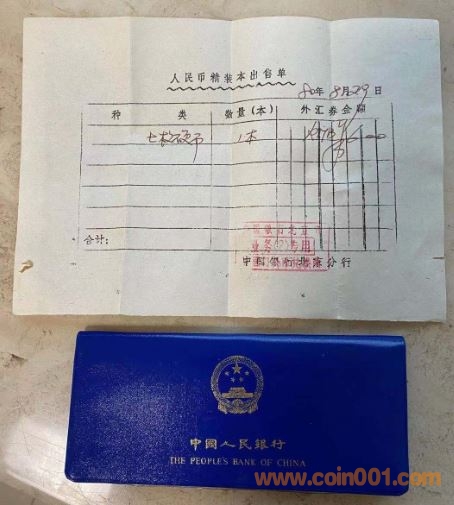 人民币精装本出售单
80年8月29日
种 类 数量(本) 外汇券金额
七枚硬币 1本
合计:
业务(2)专用
中国银行北京分行
中國人民銀行
THE PEOPLE'S BANK OF CHINA
www.coin001.com